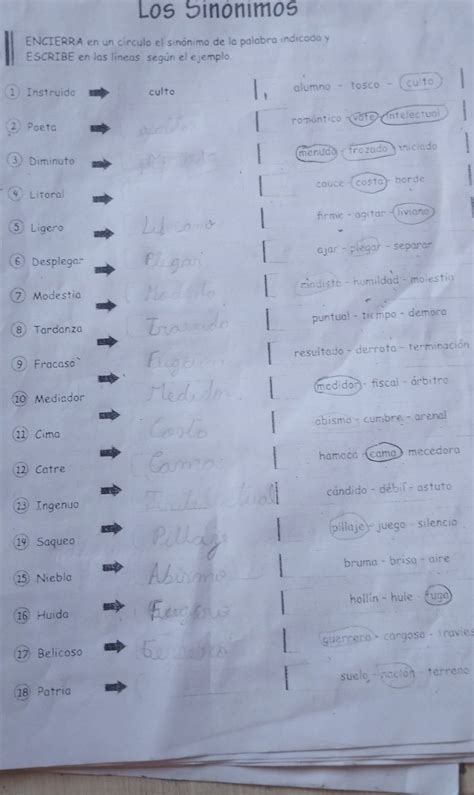 Los Sinónimos
ENCIERRA en un círculo el sinónimo de la palabra indicada y
ESCRIBE en las líneas, según el ejemplo.
1 Instruido culto alumno - tosco - culto
2 Poeta romántico - vate - intelectual
3 Diminuto menudo - trazado - iniciado
4 Litoral couce - costa - borde
5 Ligero Liviano firme - agitar - liviano
6 Desplegar Plegar ajar - plegar - separar
7 Modestia Modesto modista - humildad - molestia
8 Tardanza puntual - tiempo - demora
9 Fracaso resultado - derrota - terminación
10 Mediador Medidor medidor - fiscal - árbitro
11 Cima Costo abismo - cumbre - arenal
12 Catre Camas hamaca - cama - mecedora
13 Ingenuo cándido - débil - astuto
14 Saqueo Pillaje pillaje - juego - silencio
15 Niebla Abismo bruma - brisa - aire
16 Huida hollín - hule - fuga
17 Belicoso guerrero - cargoso - travies
18 Patria suelo - nación - terreno